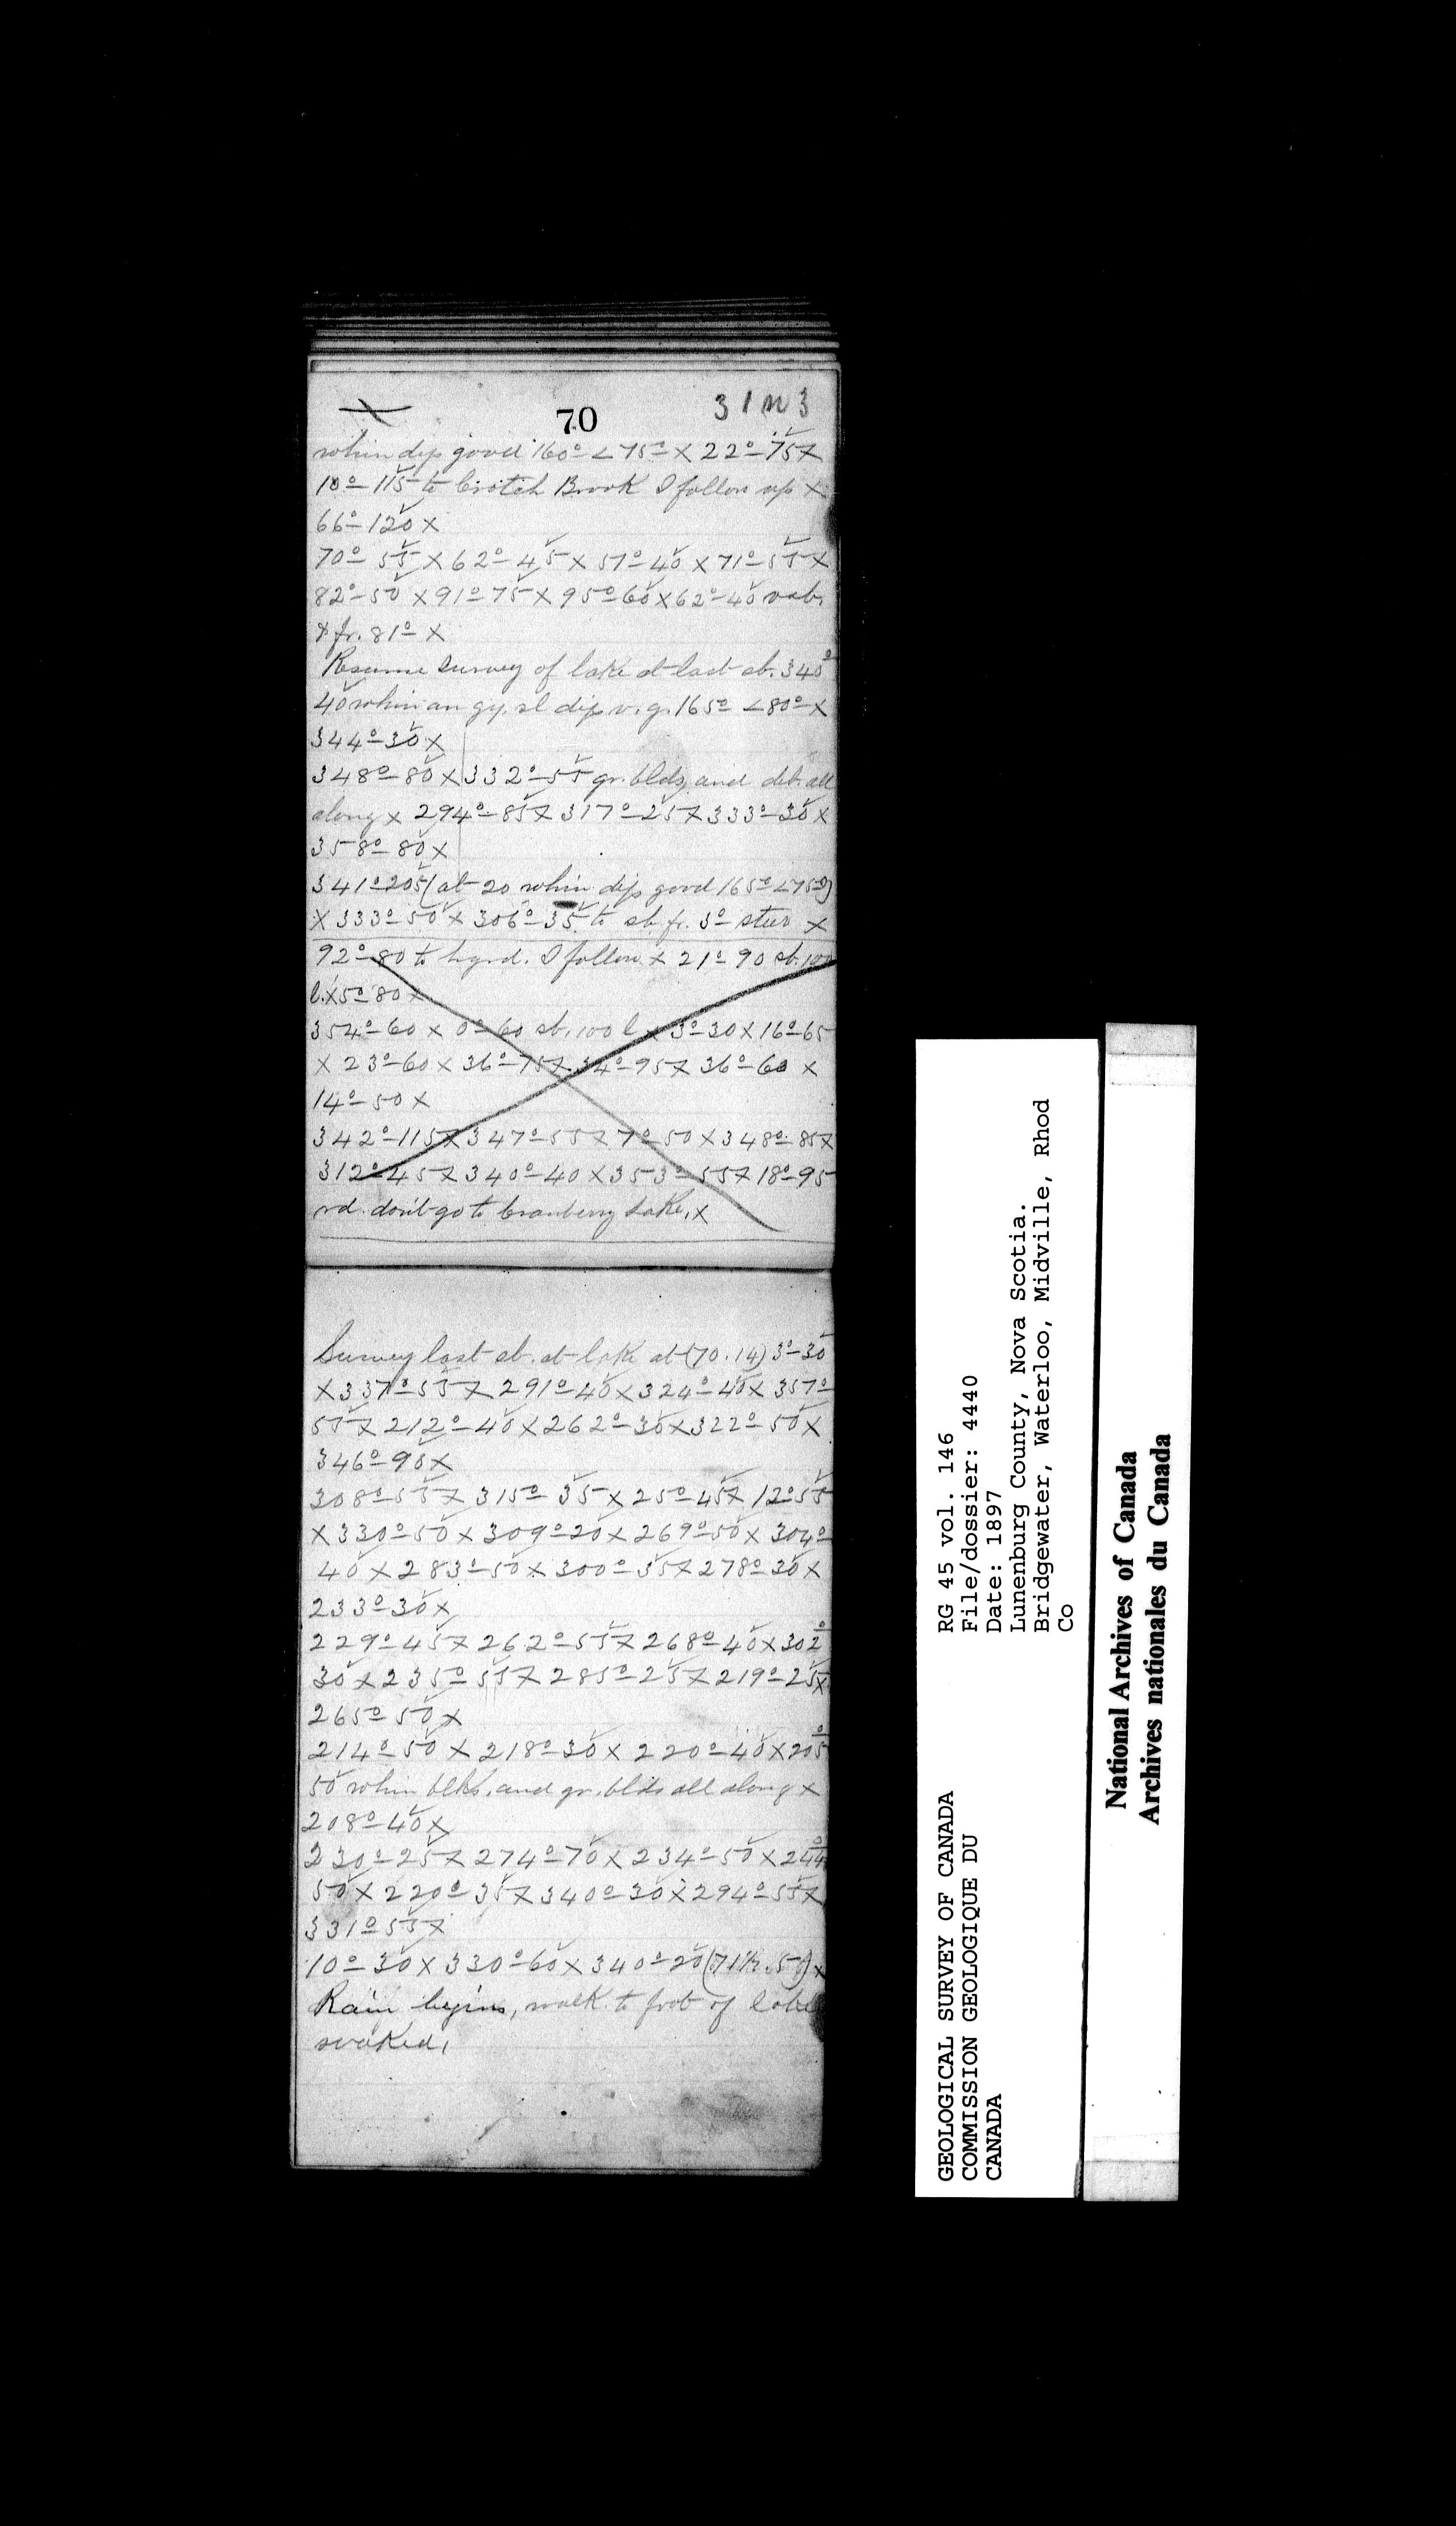 70
31 n 3
whin dip good 160° < 75° X 22° - 75 X
10° - 115 to Crotch Brook I follow up X
66° - 120 X
70° - 55 X 62° - 45 X 57° - 40 X 71° - 55 X
82° - 50 X 91° - 75 X 95° - 60 X 62° - 40
& fr. 81° X
Resume Survey of lake at last st. 340°
40 whin an gy. sl dip v. g. 165° < 80° X
344° - 30 X
348° - 80 X 332° - 55 gr. blds and deb. all
along X 294° - 85 X 317° - 25 X 333° - 30 X
358° - 80 X
341° 205 (at 20 whin dip good 165° < 75°)
X 333° - 50 X 306° - 35 to st. fr. 3° X
92° - 80 to hyrd. I follow X 21° 90 st. 100
l. X 5° 80 X
354° - 60 X 0° - 60 st. 100 l X 3° - 30 X 16° - 65
X 23° - 60 X 36° - 75 X 34° - 95 X 36° - 60 X
14° - 50 X
342° - 115 X 347° - 55 X 7° - 50 X 348° - 85 X
312° - 45 X 340° - 40 X 353° - 55 X 18° - 95
rd. don't go to Cranberry Lake, X
Survey last st. at lake at (70.14) 3° - 30
X 337° - 55 X 291° - 40 X 324° - 40 X 357°
55 X 212° - 40 X 262° - 30 X 322° - 50 X
346° - 90 X
308° - 55 X 315° - 35 X 25° - 45 X 12° 55
X 330° - 50 X 309° - 20 X 269° - 50 X 304°
40 X 283° - 50 X 300° - 35 X 278° 30 X
233° - 30 X
229° - 45 X 262° - 55 X 268° - 40 X 302°
30 X 235° - 55 X 285° - 25 X 219° - 25 X
265° - 50 X
214° - 50 X 218° - 30 X 220° - 40 X 205°
50 whin blks. and gr. blds all along X
208° - 40 X
230° - 25 X 274° - 70 X 234° - 50 X 244°
50 X 220° - 35 X 340° - 30 X 294° - 55 X
331° - 55 X
10° - 30 X 330° - 60 X 340° - 20 (71½.5) X
Rain begins, walk to foot of lake
soaked,
GEOLOGICAL SURVEY OF CANADA
COMMISSION GEOLOGIQUE DU
CANADA
RG 45 vol. 146
File/dossier: 4440
Date: 1897
Lunenburg County, Nova Scotia.
Bridgewater, Waterloo, Midville, Rhod
Co
National Archives of Canada
Archives nationales du Canada